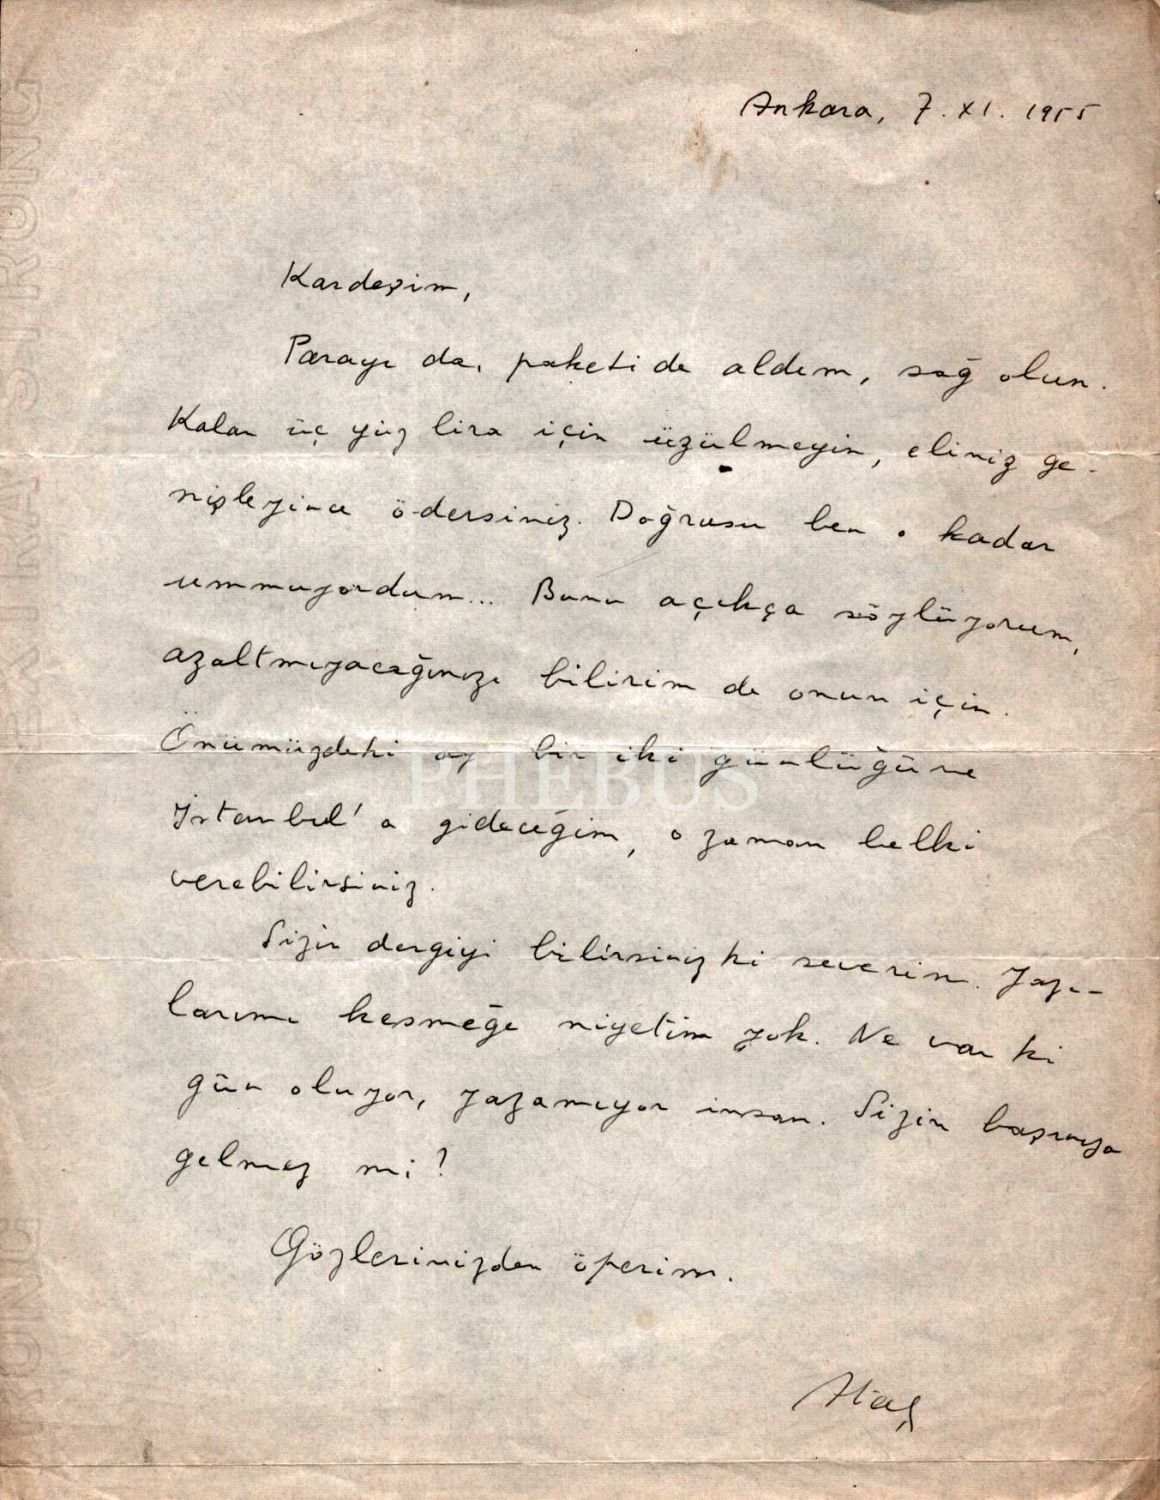 Ankara, 7. XI. 1955
Kardeşim,
Parayı da, paketi de aldım, sağ olun.
Kalan üç yüz lira için üzülmeyin, eliniz ge-
nişleyince ödersiniz. Doğrusu ben o kadar
ummuyordum... Bunu açıkça söylüyorum,
azaltmıyacağınızı bilirim de onun için.
Önümüzdeki ay bir iki günlüğüne
İstanbul'a gideceğim, o zaman belki
verebilirsiniz.
Sizin dergiyi bilirsiniz ki severim. Yazı-
larımı kesmeğe niyetim yok. Ne var ki
gün oluyor, yazamıyor insan. Sizin başınıza
gelmez mi?
Gözlerinizden öperim.
Ataç
PHEBUS
EXTRA STRONG